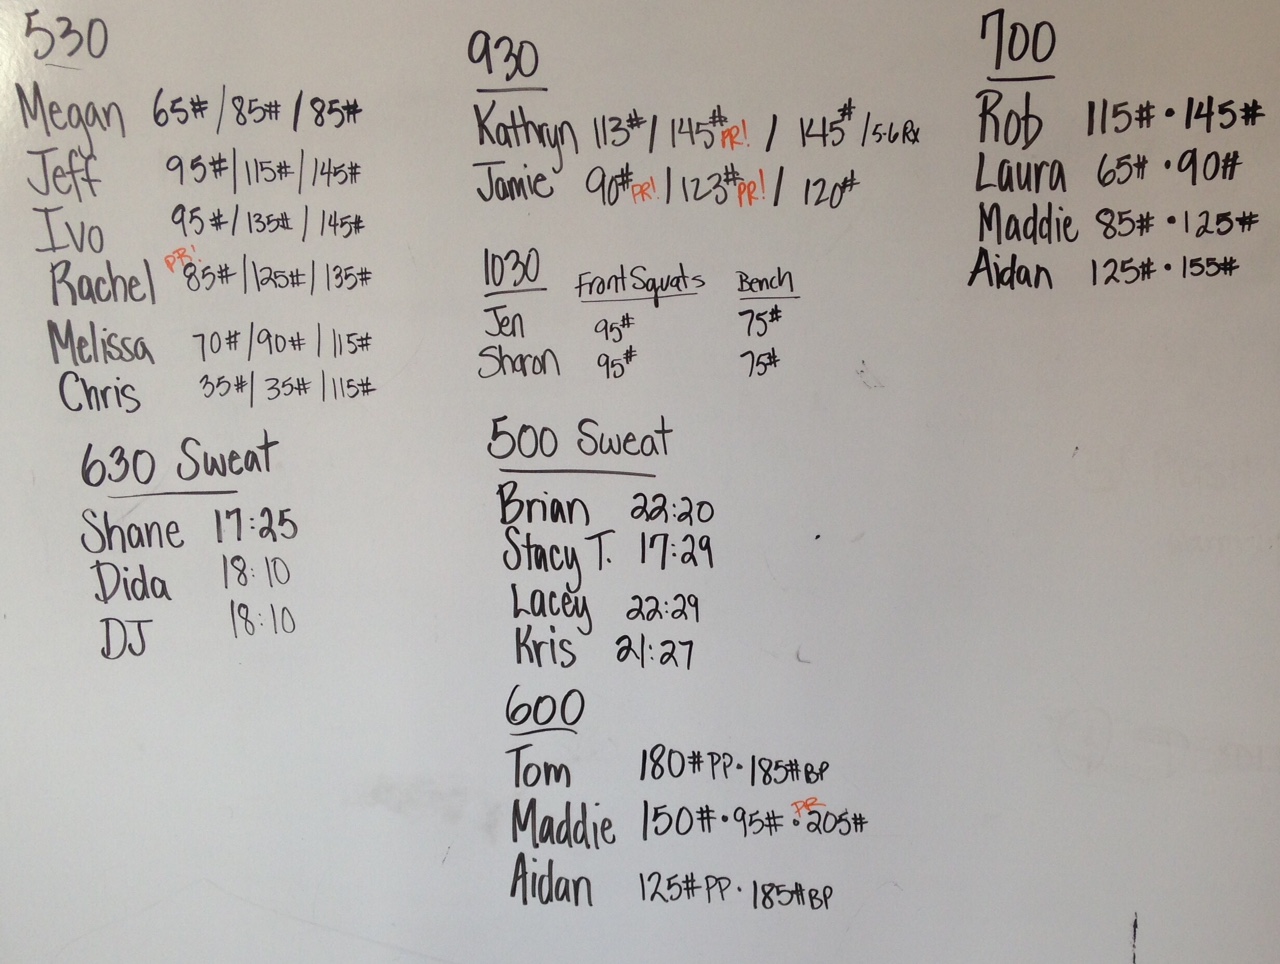 530
Megan 65# / 85# / 85#
Jeff 95# / 115# / 145#
Ivo 95# / 135# / 145#
PR!
Rachel 85# / 125# / 135#
Melissa 70# / 90# / 115#
Chris 35# / 35# / 115#
630 Sweat
Shane 17:25
Dida 18:10
DJ 18:10
930
Kathryn 113# / 145# PR! / 145# / 5-6 Rx
Jamie 90# PR! / 123# PR! / 120#
1030 Front Squats Bench
Jen 95# 75#
Sharon 95# 75#
500 Sweat
Brian 22:20
Stacy T. 17:29
Lacey 22:29
Kris 21:27
600
Tom 180# PP · 185# BP
PR
Maddie 150# · 95# · 205#
Aidan 125# PP · 185# BP
700
Rob 115# · 145#
Laura 65# · 90#
Maddie 85# · 125#
Aidan 125# · 155#